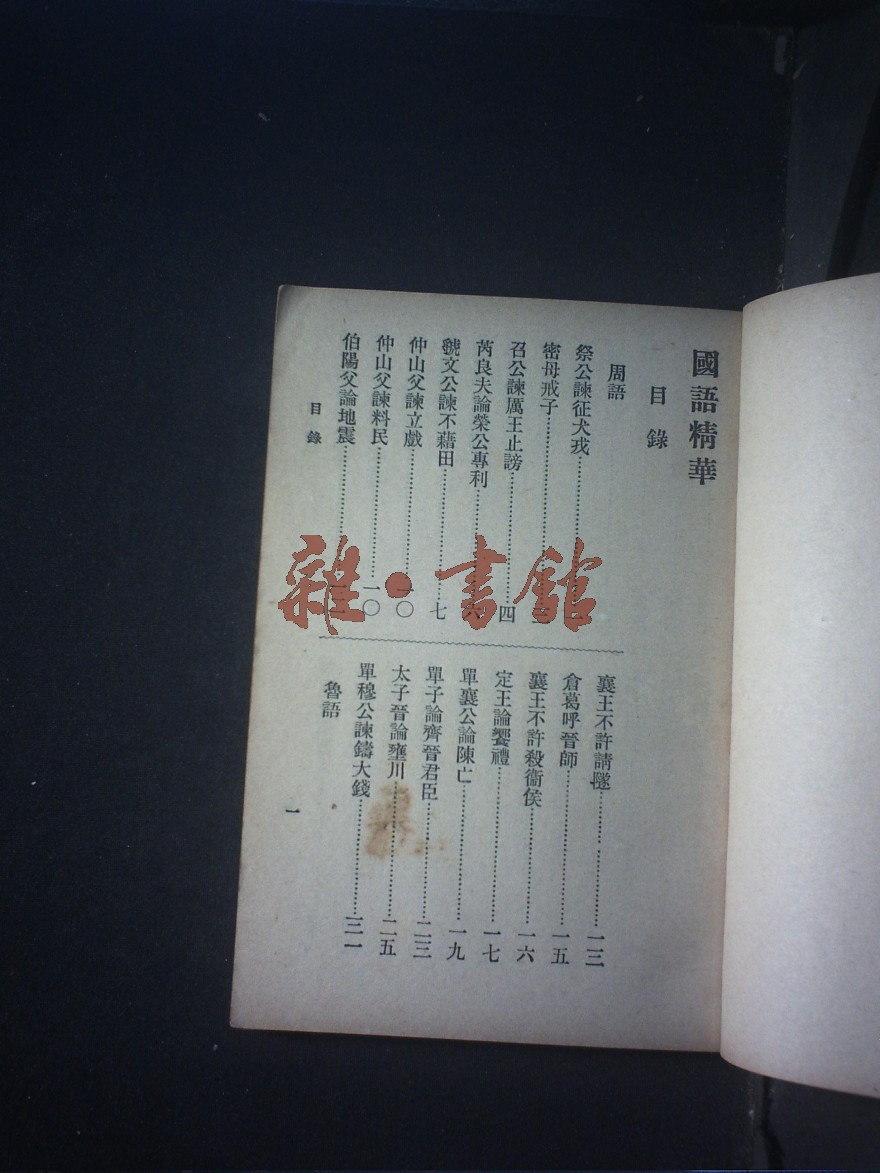 國語精華
目錄
周語
祭公諫征犬戎
密母戒子
召公諫厲王止謗……四
芮良夫論榮公專利
虢文公諫不藉田……七
仲山父諫立戲……一〇
仲山父諫料民……一〇
伯陽父論地震
襄王不許請隧……一三
倉葛呼晉師……一五
襄王不許殺衞侯……一六
定王論饗禮……一七
單襄公論陳亡……一九
單子論齊晉君臣……二三
太子晉論壅川……二五
單穆公諫鑄大錢……三一
魯語
目錄
一
雜·書館